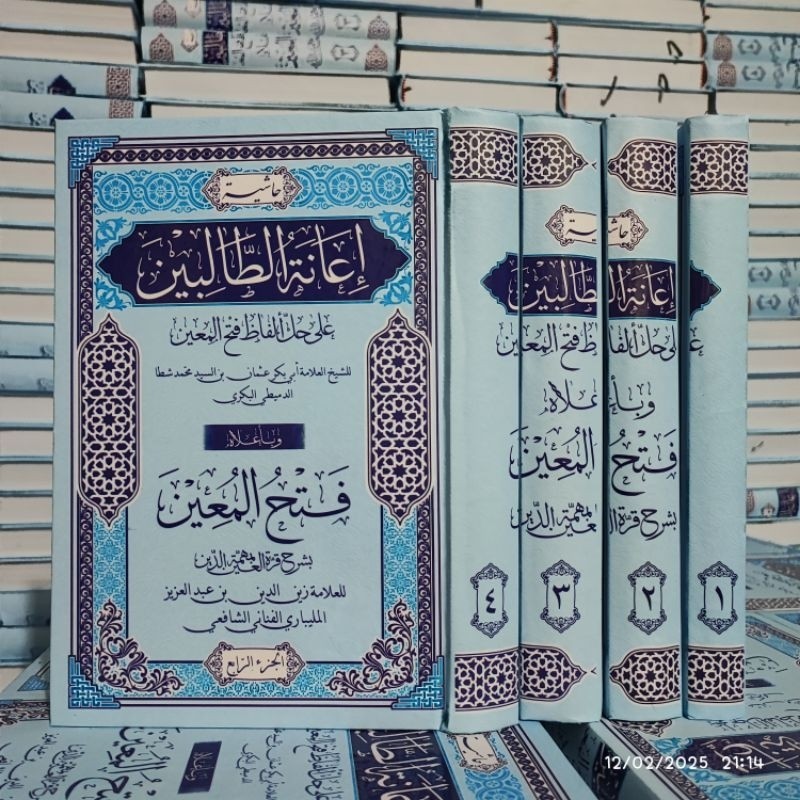 حاشية
إعانة الطالبين
على حل ألفاظ فتح المعين
للشيخ العلامة أبي بكر عثمان بن السيد محمد شطا
الدميطي البكري
وبأعلاه
فتح المعين
بشرح قرة العين بمهمة الدين
للعلامة زين الدين بن عبد العزيز
المليباري الفناني الشافعي
الجزء الرابع
حاشية
إعانة الطالبين
على حل ألفاظ فتح المعين
وبأعلاه
فتح المعين
بشرح قرة العين بمهمة الدين
٤ ٣ ٢ ١
12/02/2025 21:14